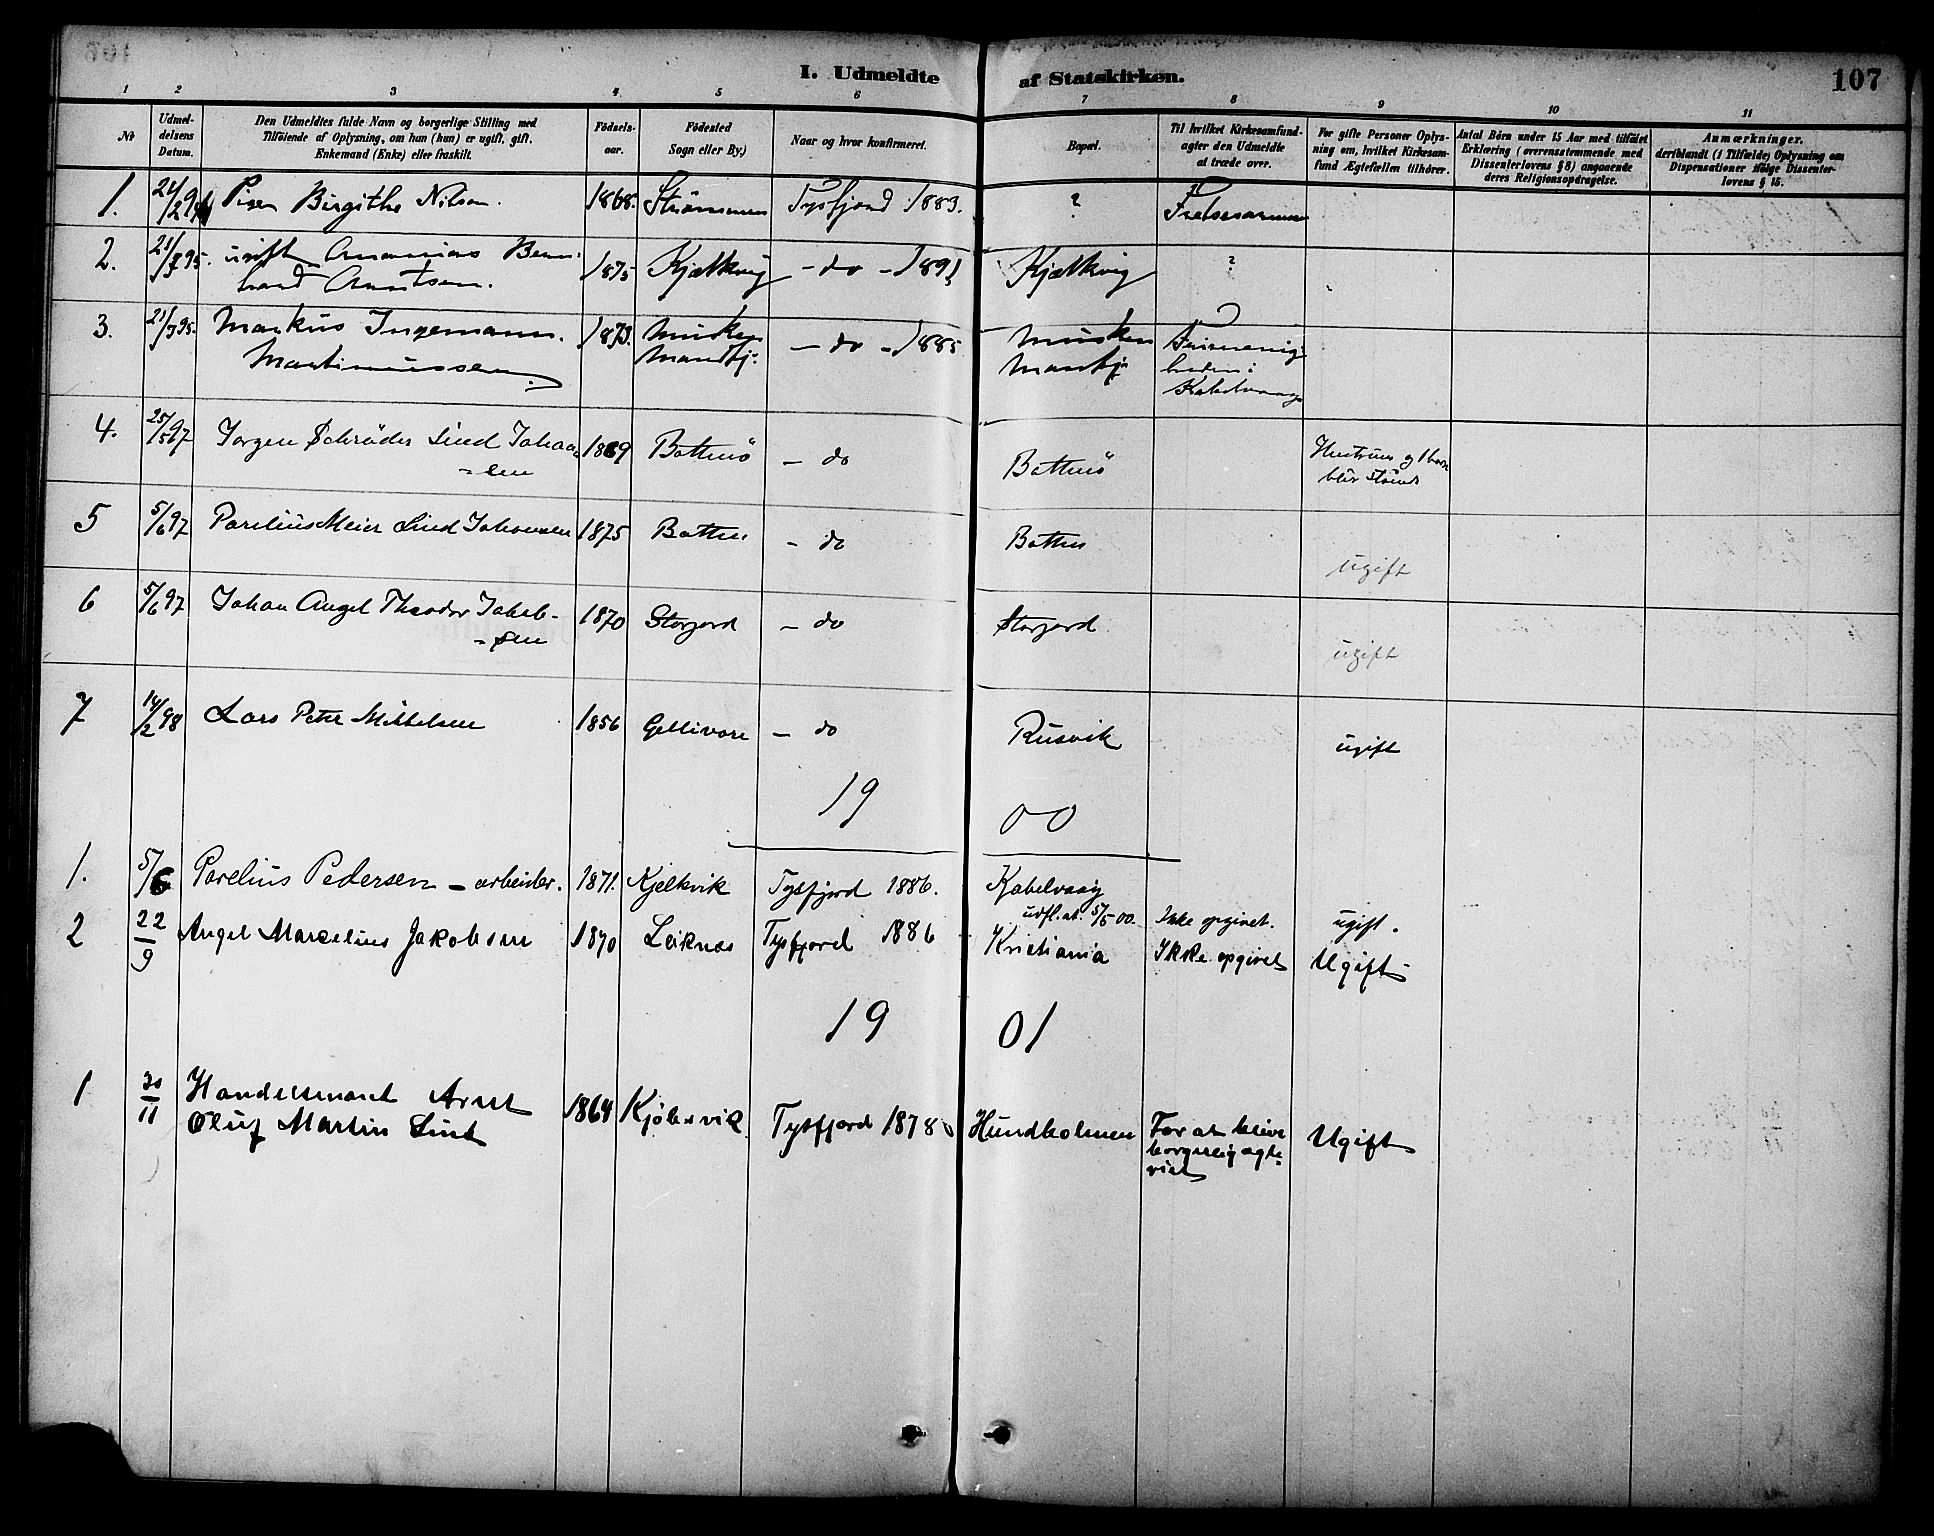 I. Udmeldte af Statskirken. 107
1 2 3 4 5 6 7 8 9 10 11
№
Udmeldelsens Datum.
Den Udmeldtes fulde Navn og borgerlige Stilling med
Tilföiende af Oplysning, om han (hun) er ugift, gift,
Enkemand (Enke) eller fraskilt.
Födselsaar.
Födested
Sogn eller By.)
Naar og hvor konfirmeret.
Bopæl.
Til hvilket Kirkesamfund
agter den Udmeldte
at træde over.
For gifte Personer Oplys-
ning om, hvilket Kirkesam-
fund Ægtefællen tilhörer.
Antal Börn under 15 Aar med tilföiet
Erklæring (overensstemmende med
Dissenterlovens § 8) angaaende
deres Religionsopdragelse.
Anmærkninger,
deriblandt (i Tilfælde) Oplysning om
Dispensationer ifölge Dissenter-
lovens § 15.
1. 24/2 94 Birgithe Nilsen. 1868. Strømmen Tysfjord 1883. ? Frelsesarmeen
2. 21/7 95. Ananias Bern-
hard Arntsen. 1875 Kjælkvig - do - 1891 Kjælkvig ?
3. 21/7 95. Markus Ingemann.
Martinussen 1873. Musken
Mandfj. - do - 1885 Musken
Manfj. Frimenig-
heden i
Kabelvaag
4. 25/5 97 Jørgen Schrøder Lind Johan-
-sen 1869 Botnø - do Botnø Hustruen og 1 barn
blir staaende
5 5/6 97 Parelius Meier Lind Johansen 1875 Botten - do Botten ugift
6 5/6 97 Johan Angel Theodor Jakob-
-sen 1870 Storjord - do Storjord ugift
7 14/2 98 Lars Peter Mikkelsen 1856 Gellivare - do Rusvik ugift
19 00
1. 5/6 Parelius Pedersen - arbeider. 1871. Kjelkvik Tysfjord 1886. Kabelvaag
udfl.at. 5/5 00. Ikke opgivet. ugift.
2 22/9 Angel Marselius Jakobsen 1870 Leiknes Tysfjord 1886 Kristiania Ikke opgivet Ugift
19 01
1 30/11 Handelsmand Arnt
Oluf Martin Lind 1864 Kjøbsvik Tysfjord 1878 Hundholmen For at blive
borgerlig ægte-
viet Ugift